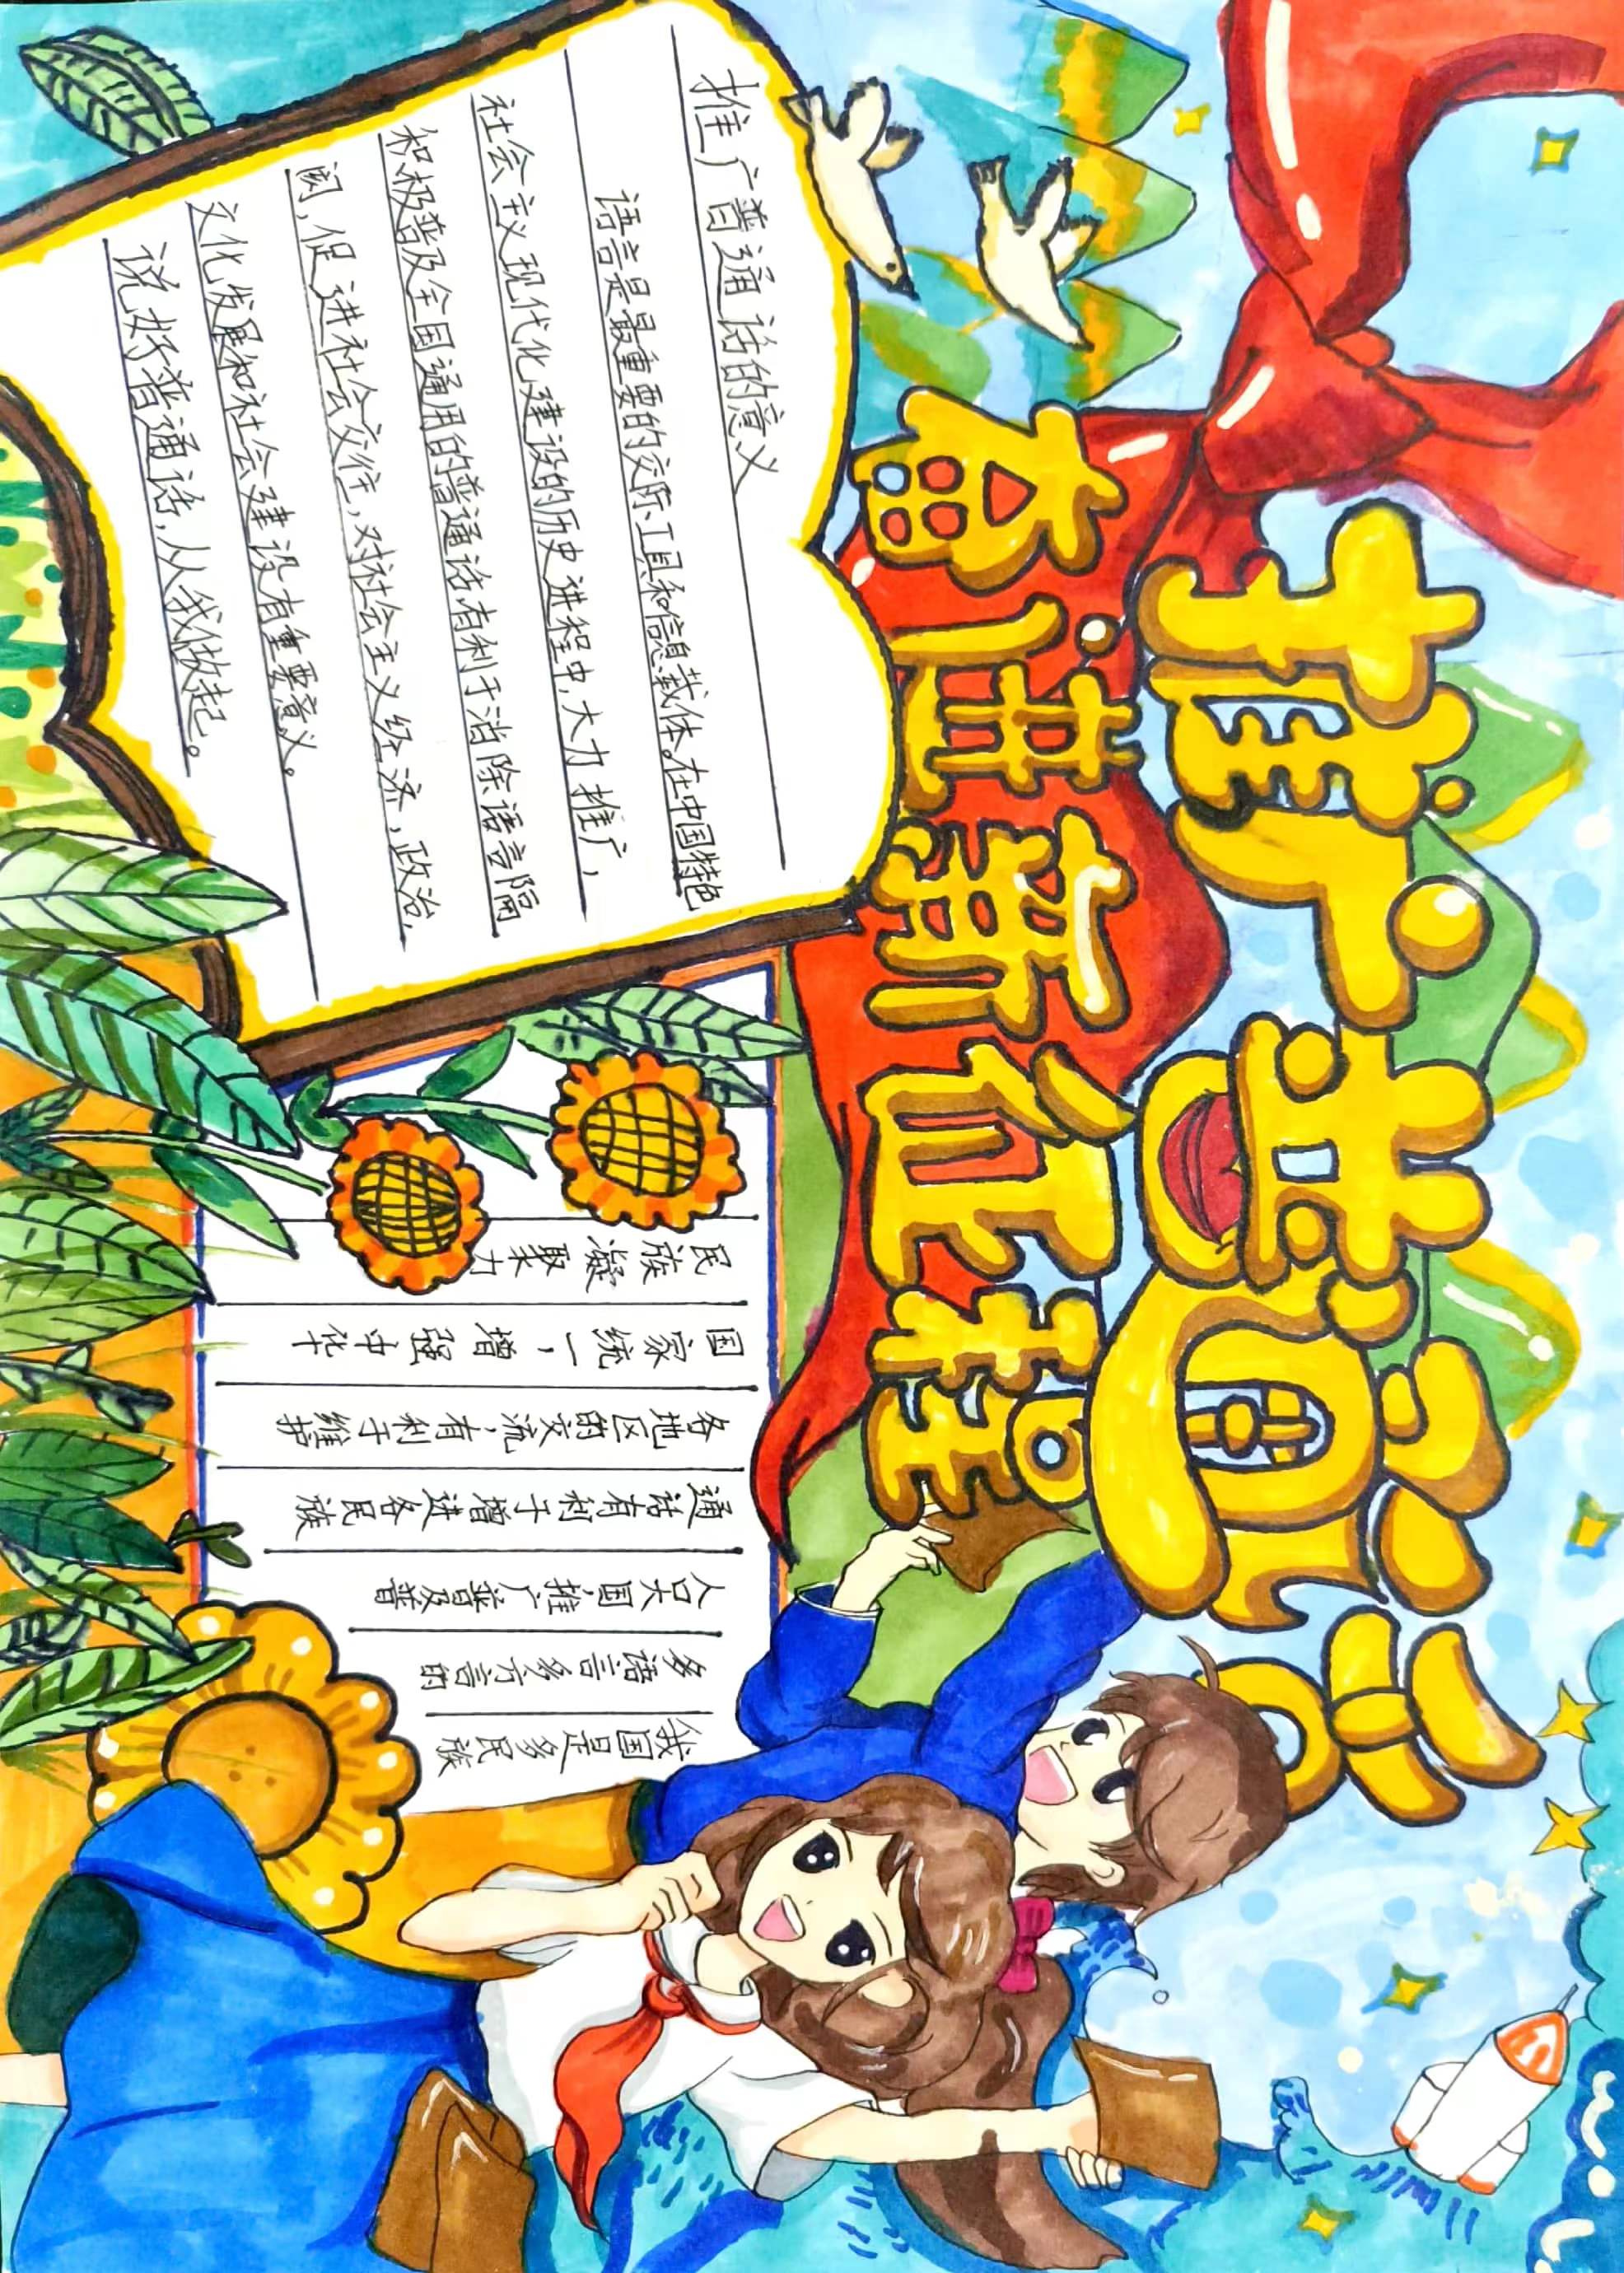 推广普通话
奋进新征程
推广普通话的意义
语言是最重要的交际工具和信息载体。在中国特色
社会主义现代化建设的历史进程中,大力推广,
积极普及全国通用的普通话,有利于消除语言隔
阂,促进社会交往,对社会主义经济,政治,
文化发展和社会建设有重要意义。
说好普通话,从我做起。
我国是多民族
多语言多方言的
人口大国,推广普及普
通话有利于增进各民族
各地区的交流,有利于维护
国家统一,增强中华
民族凝聚力